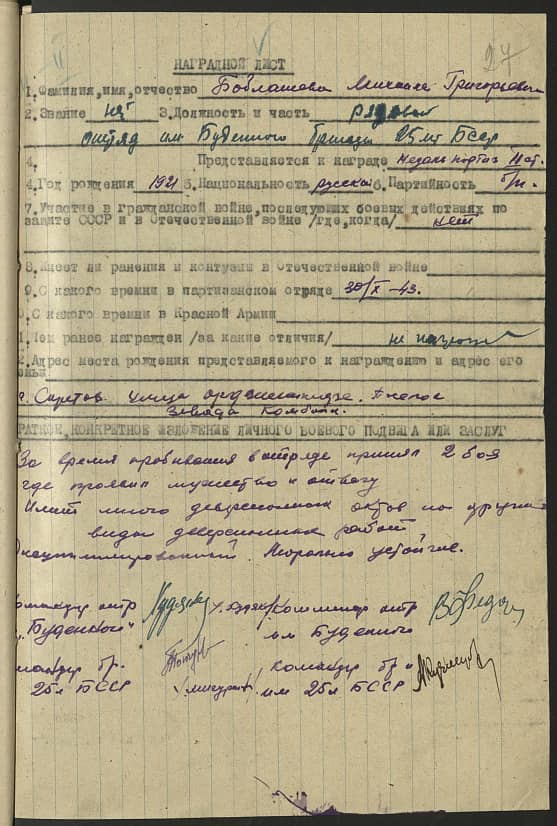 27
НАГРАДНОЙ ЛИСТ
1. Фамилия, имя, отчество Боблашева Михаила Григорьевича
2. Звание нет 3. Должность и часть рядовой
отряд им Буденного бригады 25 лет БССР
4. Представляется к награде медаль партиз II ст.
4. Год рождения 1921 б. Национальность русский 6. Партийность б/п.
7. Участие в гражданской войне, последующих боевых действиях по
защите СССР и в Отечественной войне /где, когда/ нет
8. Имеет ли ранения и контузии в Отечественной войне
9. С какого времни в партизанском отряде 30/X-43.
0. С какого времни в Красной Армии
1. Чем ранее награжден /за какие отличия/ не награжд
2. Адрес места рождения представляемого к награждению и адрес его
семьи
г. Саратов улица орджоникидзе. Поселок
завода Комбайн.
РАТКОЕ, КОНКРЕТНОЕ ИЗЛОЖЕНИЕ ЛИЧНОГО БОЕВОГО ПОДВИГА ИЛИ ЗАСЛУГ
За время пребывания в отряде принял 2 боя
где проявил мужество и отвагу
Имеет много диверсионных актов и других
видов диверсионных работ
Дисциплинированный. Морально устойчив.
командир отр Комиссар отр
"Буденного" им Буденного
командир бр. Командир бр
25 л БССР им 25 л БССР